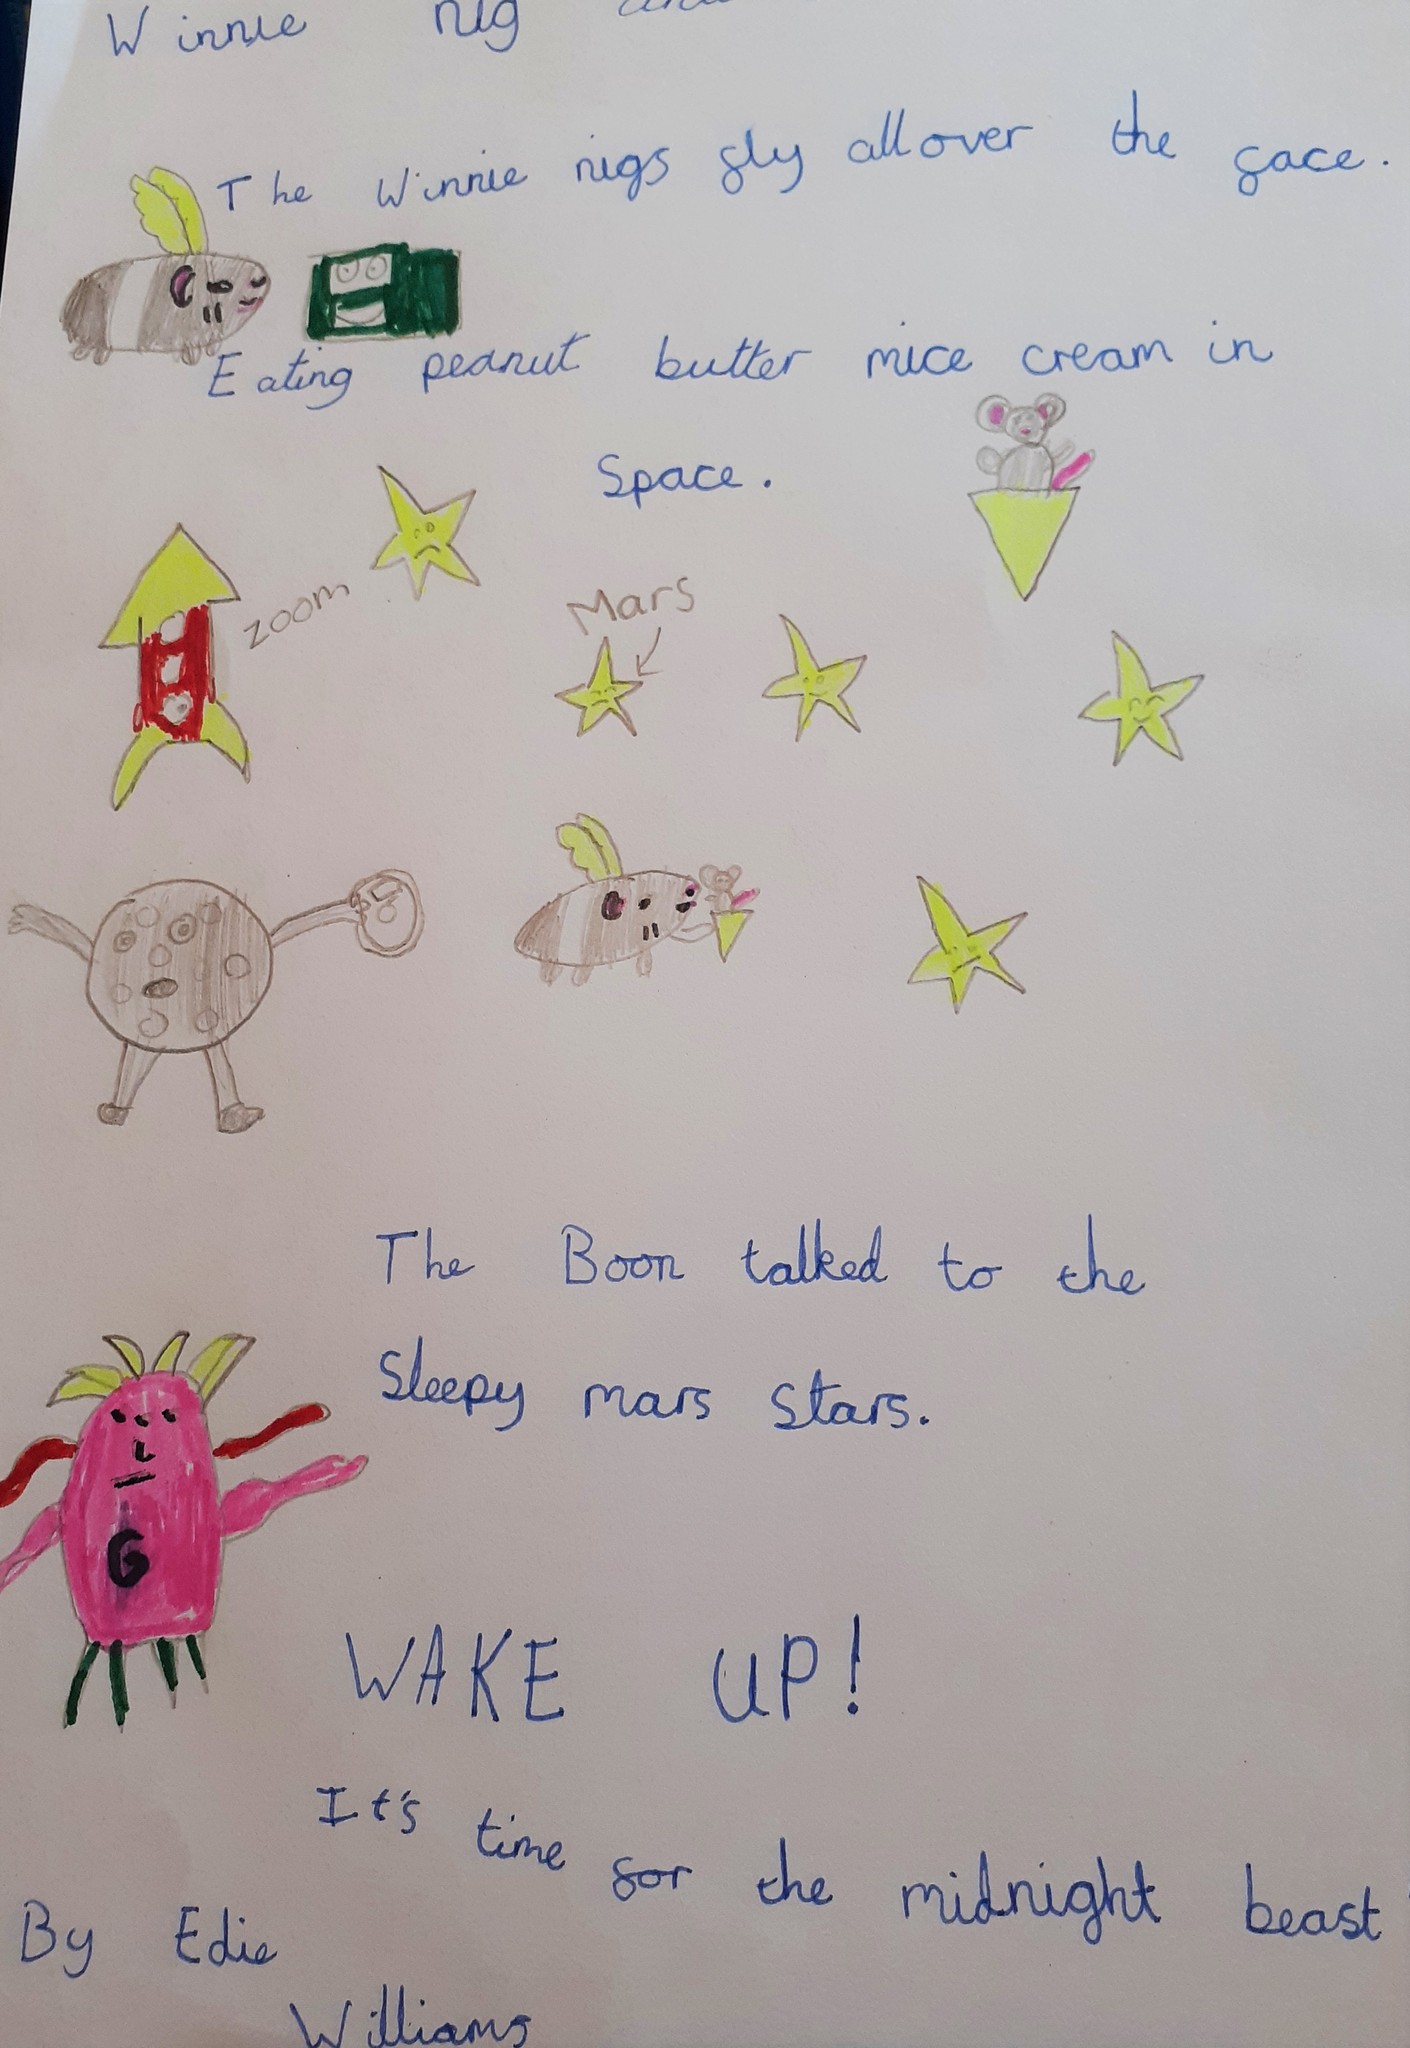 Winnie nig and
The Winnie nigs fly all over the face.
Eating peanut butter mice cream in
Space.
zoom
Mars
The Boon talked to the
Sleepy mars stars.
G
WAKE UP!
It's time for the midnight beast
By Edie
Williams